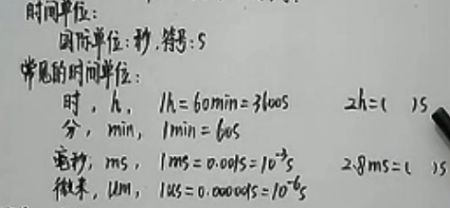 时间单位:
国际单位:秒.符号:S
常见的时间单位:
时, h, 1h=60min=3600s 2h=( )s
分, min, 1min=60s
毫秒, ms, 1ms=0.001s=10⁻³s 2.8ms=( )s
微米, μm, 1us=0.000001s=10⁻⁶s